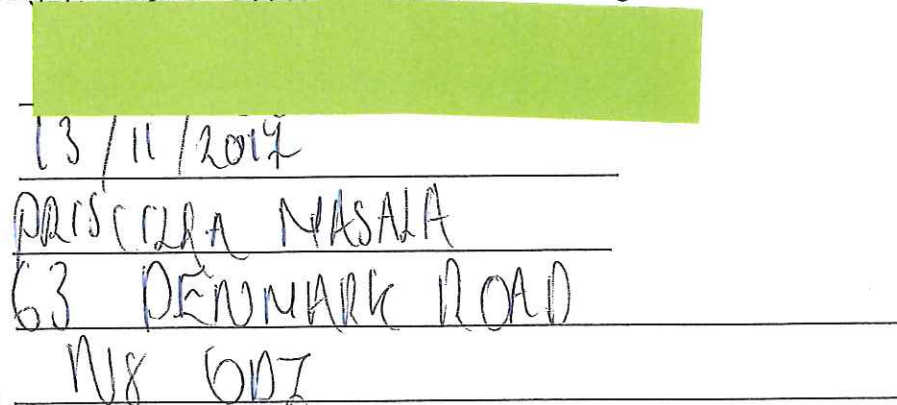 13/11/2017
PRISCILLA MASALA
63 DENMARK ROAD
N18